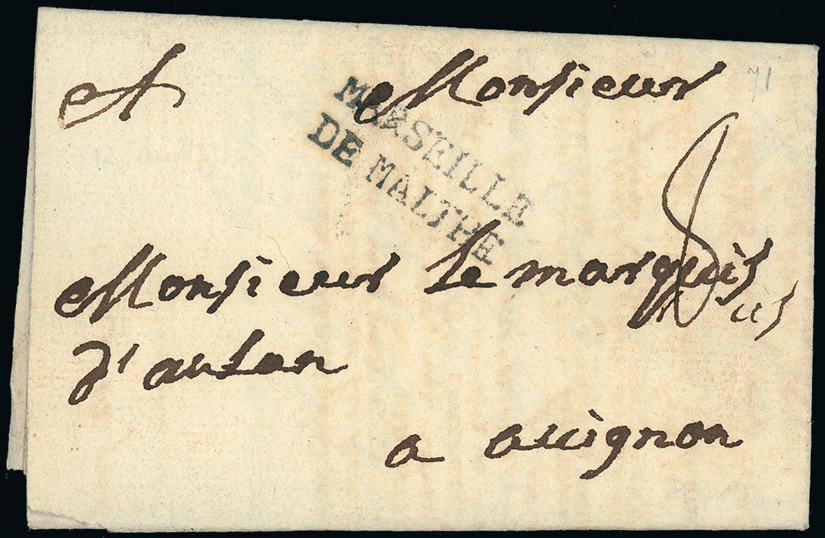 A Monsieur
71
MARSEILLE
DE MALTHE
8
Monsieur le marquis
d'aulan
a avignon